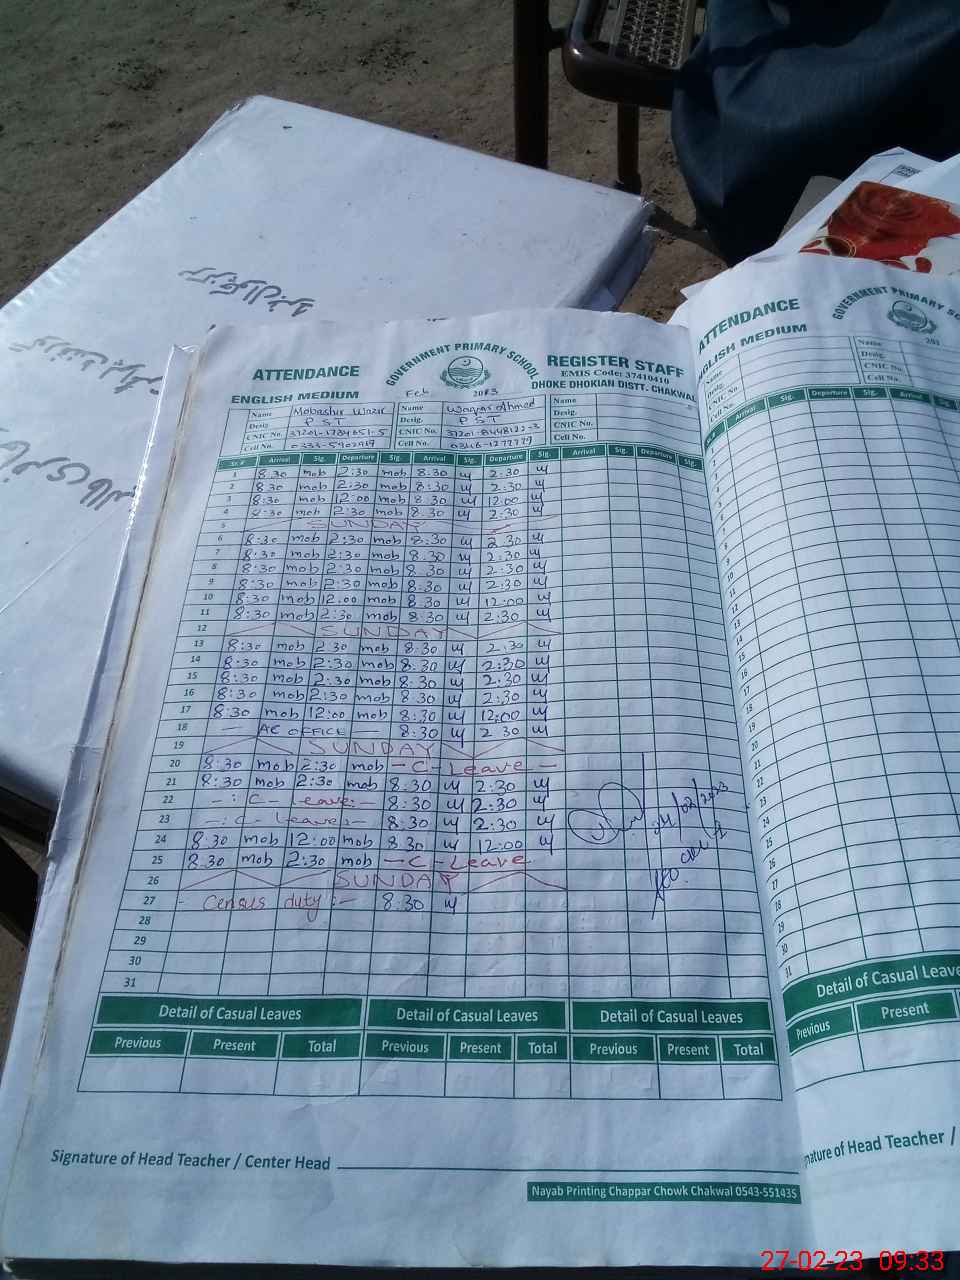 ATTENDANCE GOVERNMENT PRIMARY SCHOOL REGISTER STAFF
EMIS Code: 37410410
ENGLISH MEDIUM Feb DHOKE DHOKIAN DISTT. CHAKWAL
Name Mobashir Wazir Name Waqar Ahmed Name
Desig. P S T Desig. P S T Desig.
CNIC No. CNIC No. CNIC No.
Cell No. Cell No. 0346-1277779 Cell No.
Sr. # Arrival Sig. Departure Sig. Arrival Sig. Departure Sig. Arrival Sig. Departure Sig.
1 8:30 mob 2:30 mob 8.30 2:30
2 8:30 mob 2:30 mob 8:30 2:30
3 8:30 mob 12:00 mob 8.30 12:00
4 8:30 mob 2:30 mob 8.30 2:30
5 SUNDAY
6 8:30 mob 2:30 mob 8.30 2.30
7 8:30 mob 2:30 mob 8.30 2:30
8 8:30 mob 2:30 mob 8.30 2:30
9 8:30 mob 2:30 mob 8.30 2:30
10 8:30 mob 12:00 mob 8.30 12:00
11 8:30 mob 2:30 mob 8.30 2:30
12 SUNDAY
13 8:30 mob 2:30 mob 8.30 2:30
14 8:30 mob 2:30 mob 8.30 2:30
15 8:30 mob 2:30 mob 8.30 2:30
16 8:30 mob 2:30 mob 8.30 2:30
17 8:30 mob 12:00 mob 8.30 12:00
18 — AC OFFICE — 8.30 2 30
19 SUNDAY
20 8:30 mob 2:30 mob — C - Leave —
21 8:30 mob 2:30 mob 8.30 2:30
22 -: C - Leave:- 8:30 2:30
23 -: C - Leave:- 8:30 2:30
24 8:30 mob 12:00 mob 8.30 12:00
25 8:30 mob 2:30 mob — C - Leave
26 SUNDAY
27 - Census duty:- 8.30
28
29
30
31
Detail of Casual Leaves Detail of Casual Leaves Detail of Casual Leaves
Previous Present Total Previous Present Total Previous Present Total
Signature of Head Teacher / Center Head
Nayab Printing Chappar Chowk Chakwal 0543-551435
ATTENDANCE GOVERNMENT PRIMARY SCHO
ENGLISH MEDIUM 201
Name Name
Desig. Desig.
CNIC No. CNIC No.
Cell No. Cell No.
Arrival Sig. Departure Sig. Arrival
Detail of Casual Leave
Previous Present
nature of Head Teacher /
27-02-23 09:33